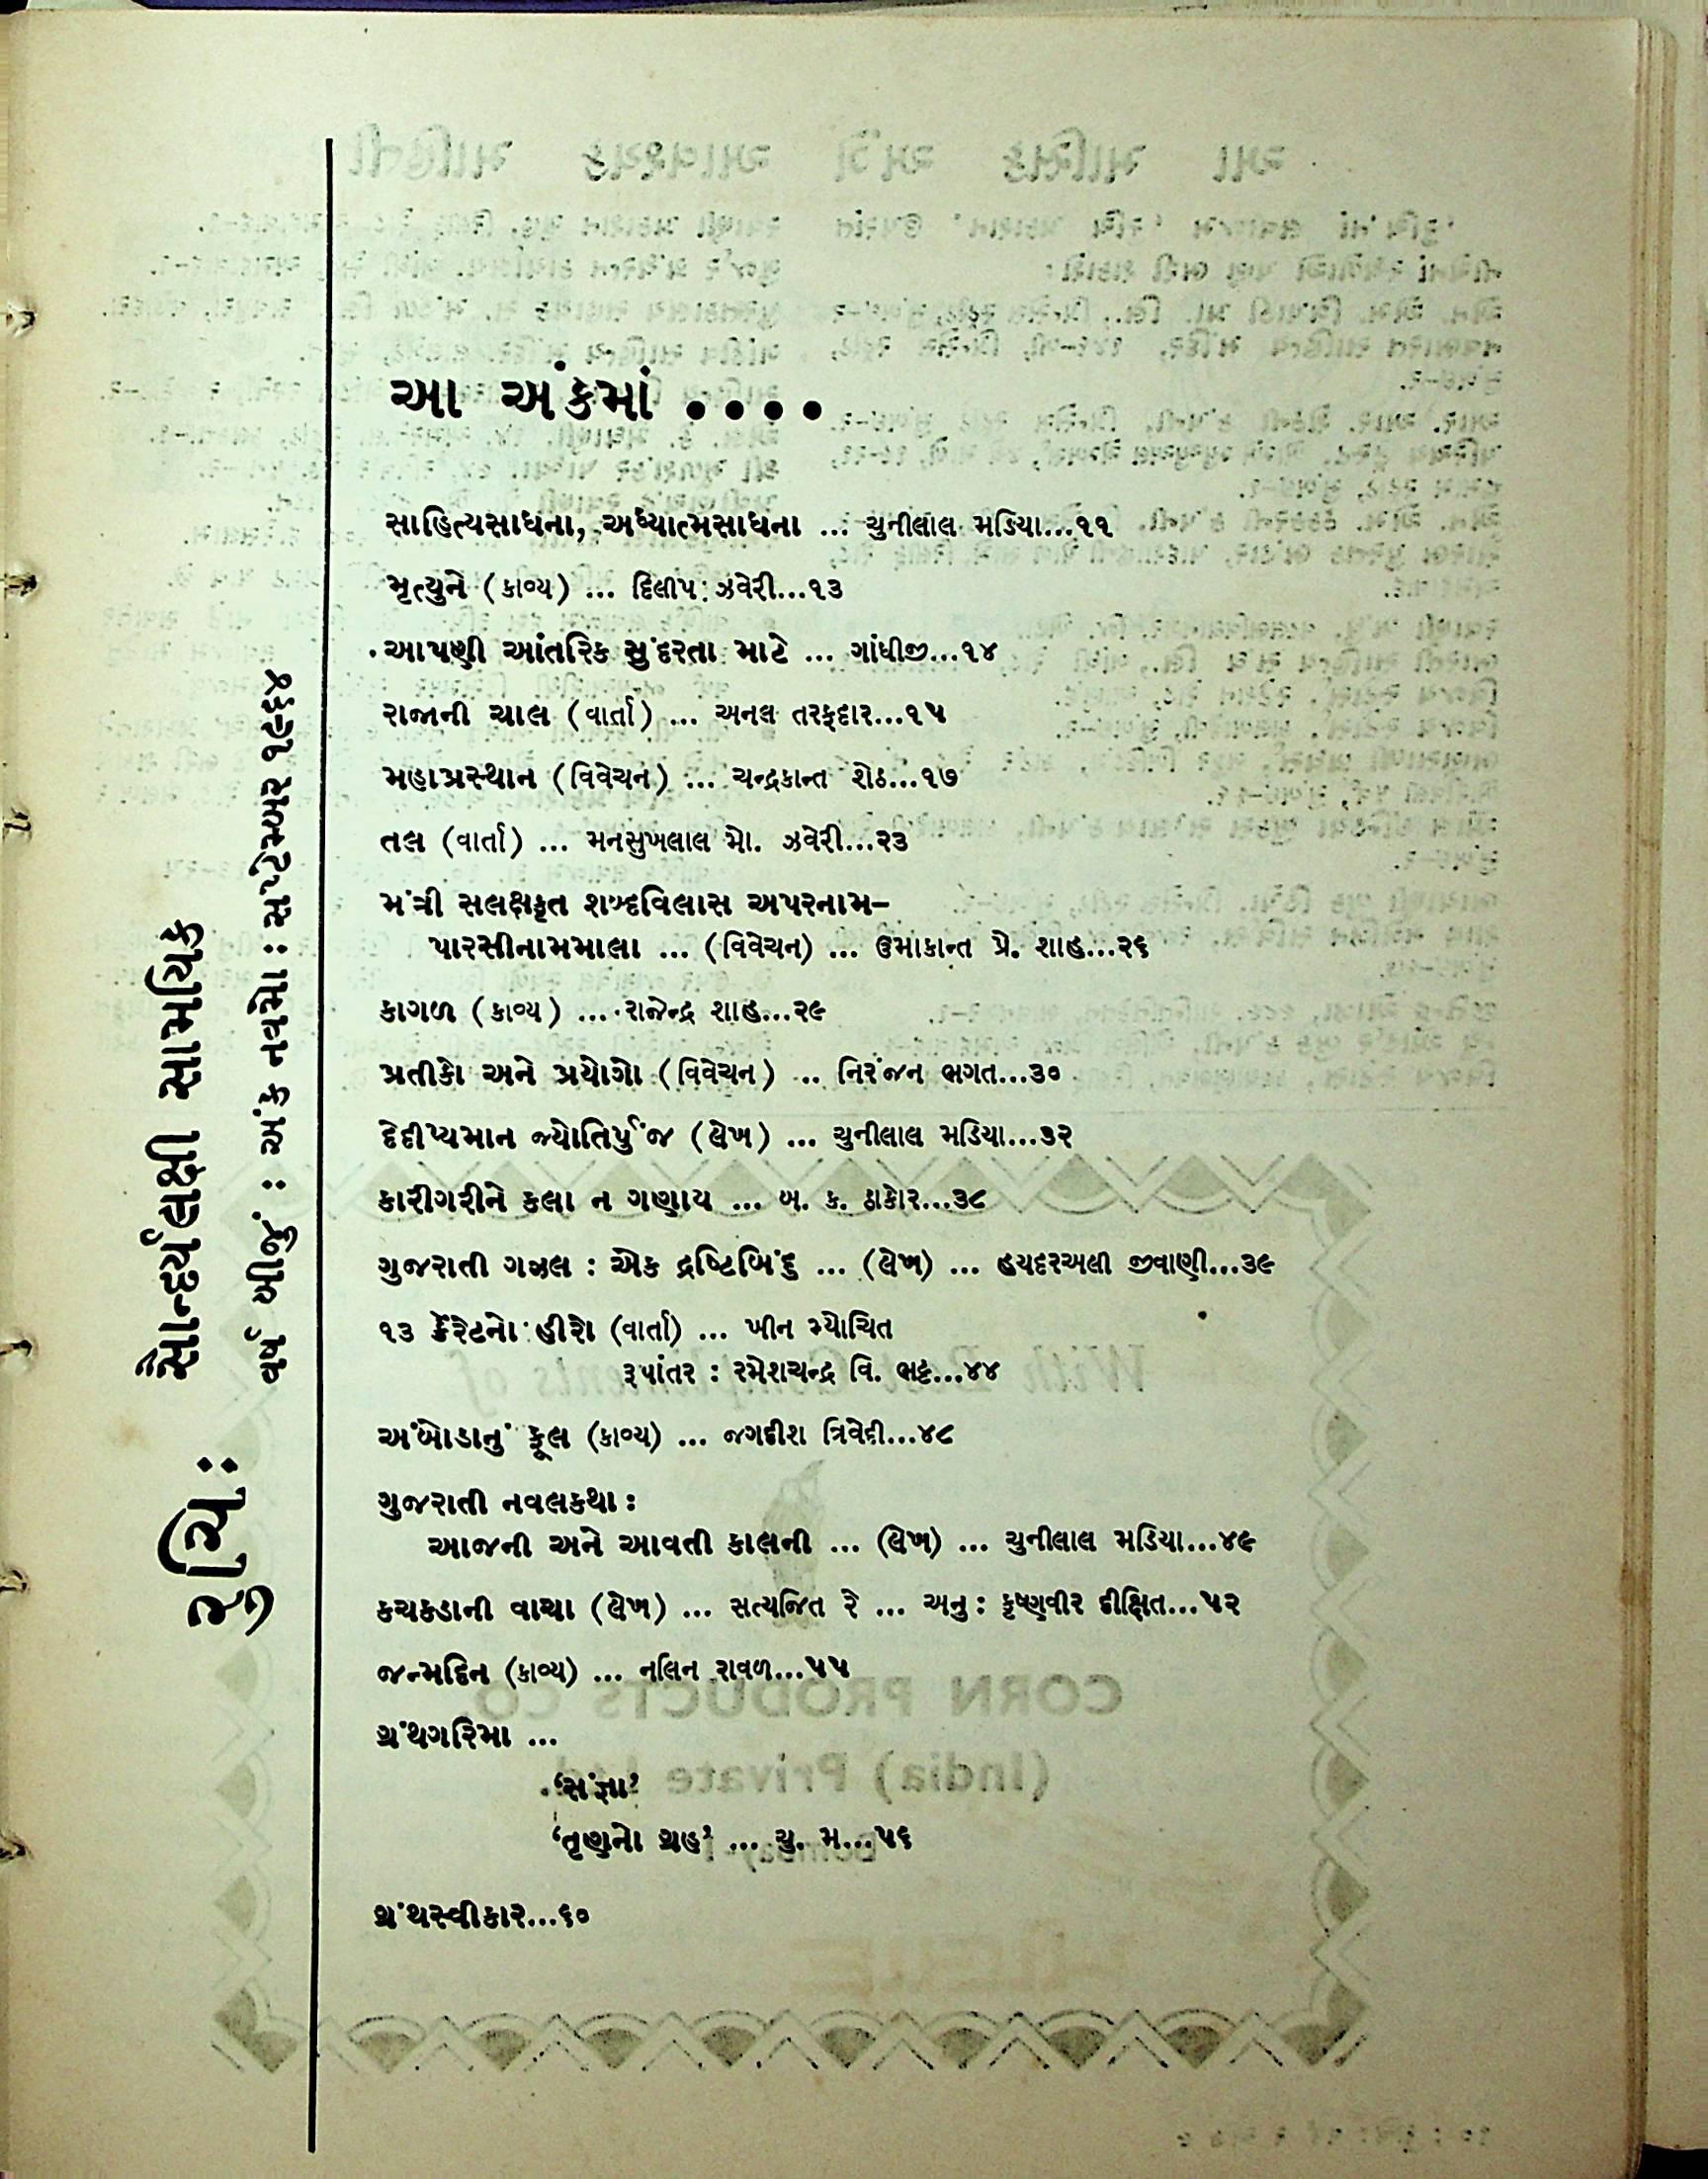 રુચિ:
સૌન્દર્યલક્ષી સામયિક
વર્ષ બીજું : અંક નવમો : સપ્ટેમ્બર ૧૯૬૪
આ અંકમાં ....
સાહિત્યસાધના, અધ્યાત્મસાધના ... ચુનીલાલ મડિયા...૧૧
મૃત્યુને (કાવ્ય) ... દિલીપ ઝવેરી...૧૩
આપણી આંતરિક સુંદરતા માટે ... ગાંધીજી...૧૪
રાજાની ચાલ (વાર્તા) ... અનલ તરફદાર...૧૫
મહાપ્રસ્થાન (વિવેચન) ... ચન્દ્રકાન્ત શેઠ...૧૭
તલ (વાર્તા) ... મનસુખલાલ મો. ઝવેરી...૨૩
મંત્રી સલક્ષકૃત શબ્દવિલાસ અપરનામ–
પારસીનામમાલા ... (વિવેચન) ... ઉમાકાન્ત પ્રે. શાહ...૨૬
કાગળ (કાવ્ય) ... રાજેન્દ્ર શાહ...૨૯
પ્રતીકો અને પ્રયોગો (વિવેચન) .. નિરંજન ભગત...૩૦
દેદીપ્યમાન જ્યોતિર્પુંજ (લેખ) ... ચુનીલાલ મડિયા...૩૨
કારીગરીને કલા ન ગણાય ... બ. ક. ઠાકોર...૩૮
ગુજરાતી ગઝલ : એક દ્રષ્ટિબિંદુ ... (લેખ) ... હયદરઅલી જીવાણી...૩૯
૧૩ કેરેટનો હીરો (વાર્તા) ... ખીન મ્યોચિત
રૂપાંતર : રમેશચન્દ્ર વિ. ભટ્ટ...૪૪
અંબોડાનું ફૂલ (કાવ્ય) ... જગદીશ ત્રિવેદી...૪૮
ગુજરાતી નવલકથા :
આજની અને આવતી કાલની ... (લેખ) ... ચુનીલાલ મડિયા...૪૯
કચકડાની વાચા (લેખ) ... સત્યજિત રે ... અનુ : કૃષ્ણવીર દીક્ષિત...૫૨
જન્મદિન (કાવ્ય) ... નલિન રાવળ...૫૫
ગ્રંથગરિમા ...
‘સંજ્ઞા’
‘તૃણનો ગ્રહ’ ... ચુ. મ...૫૬
ગ્રંથસ્વીકાર...૬૦